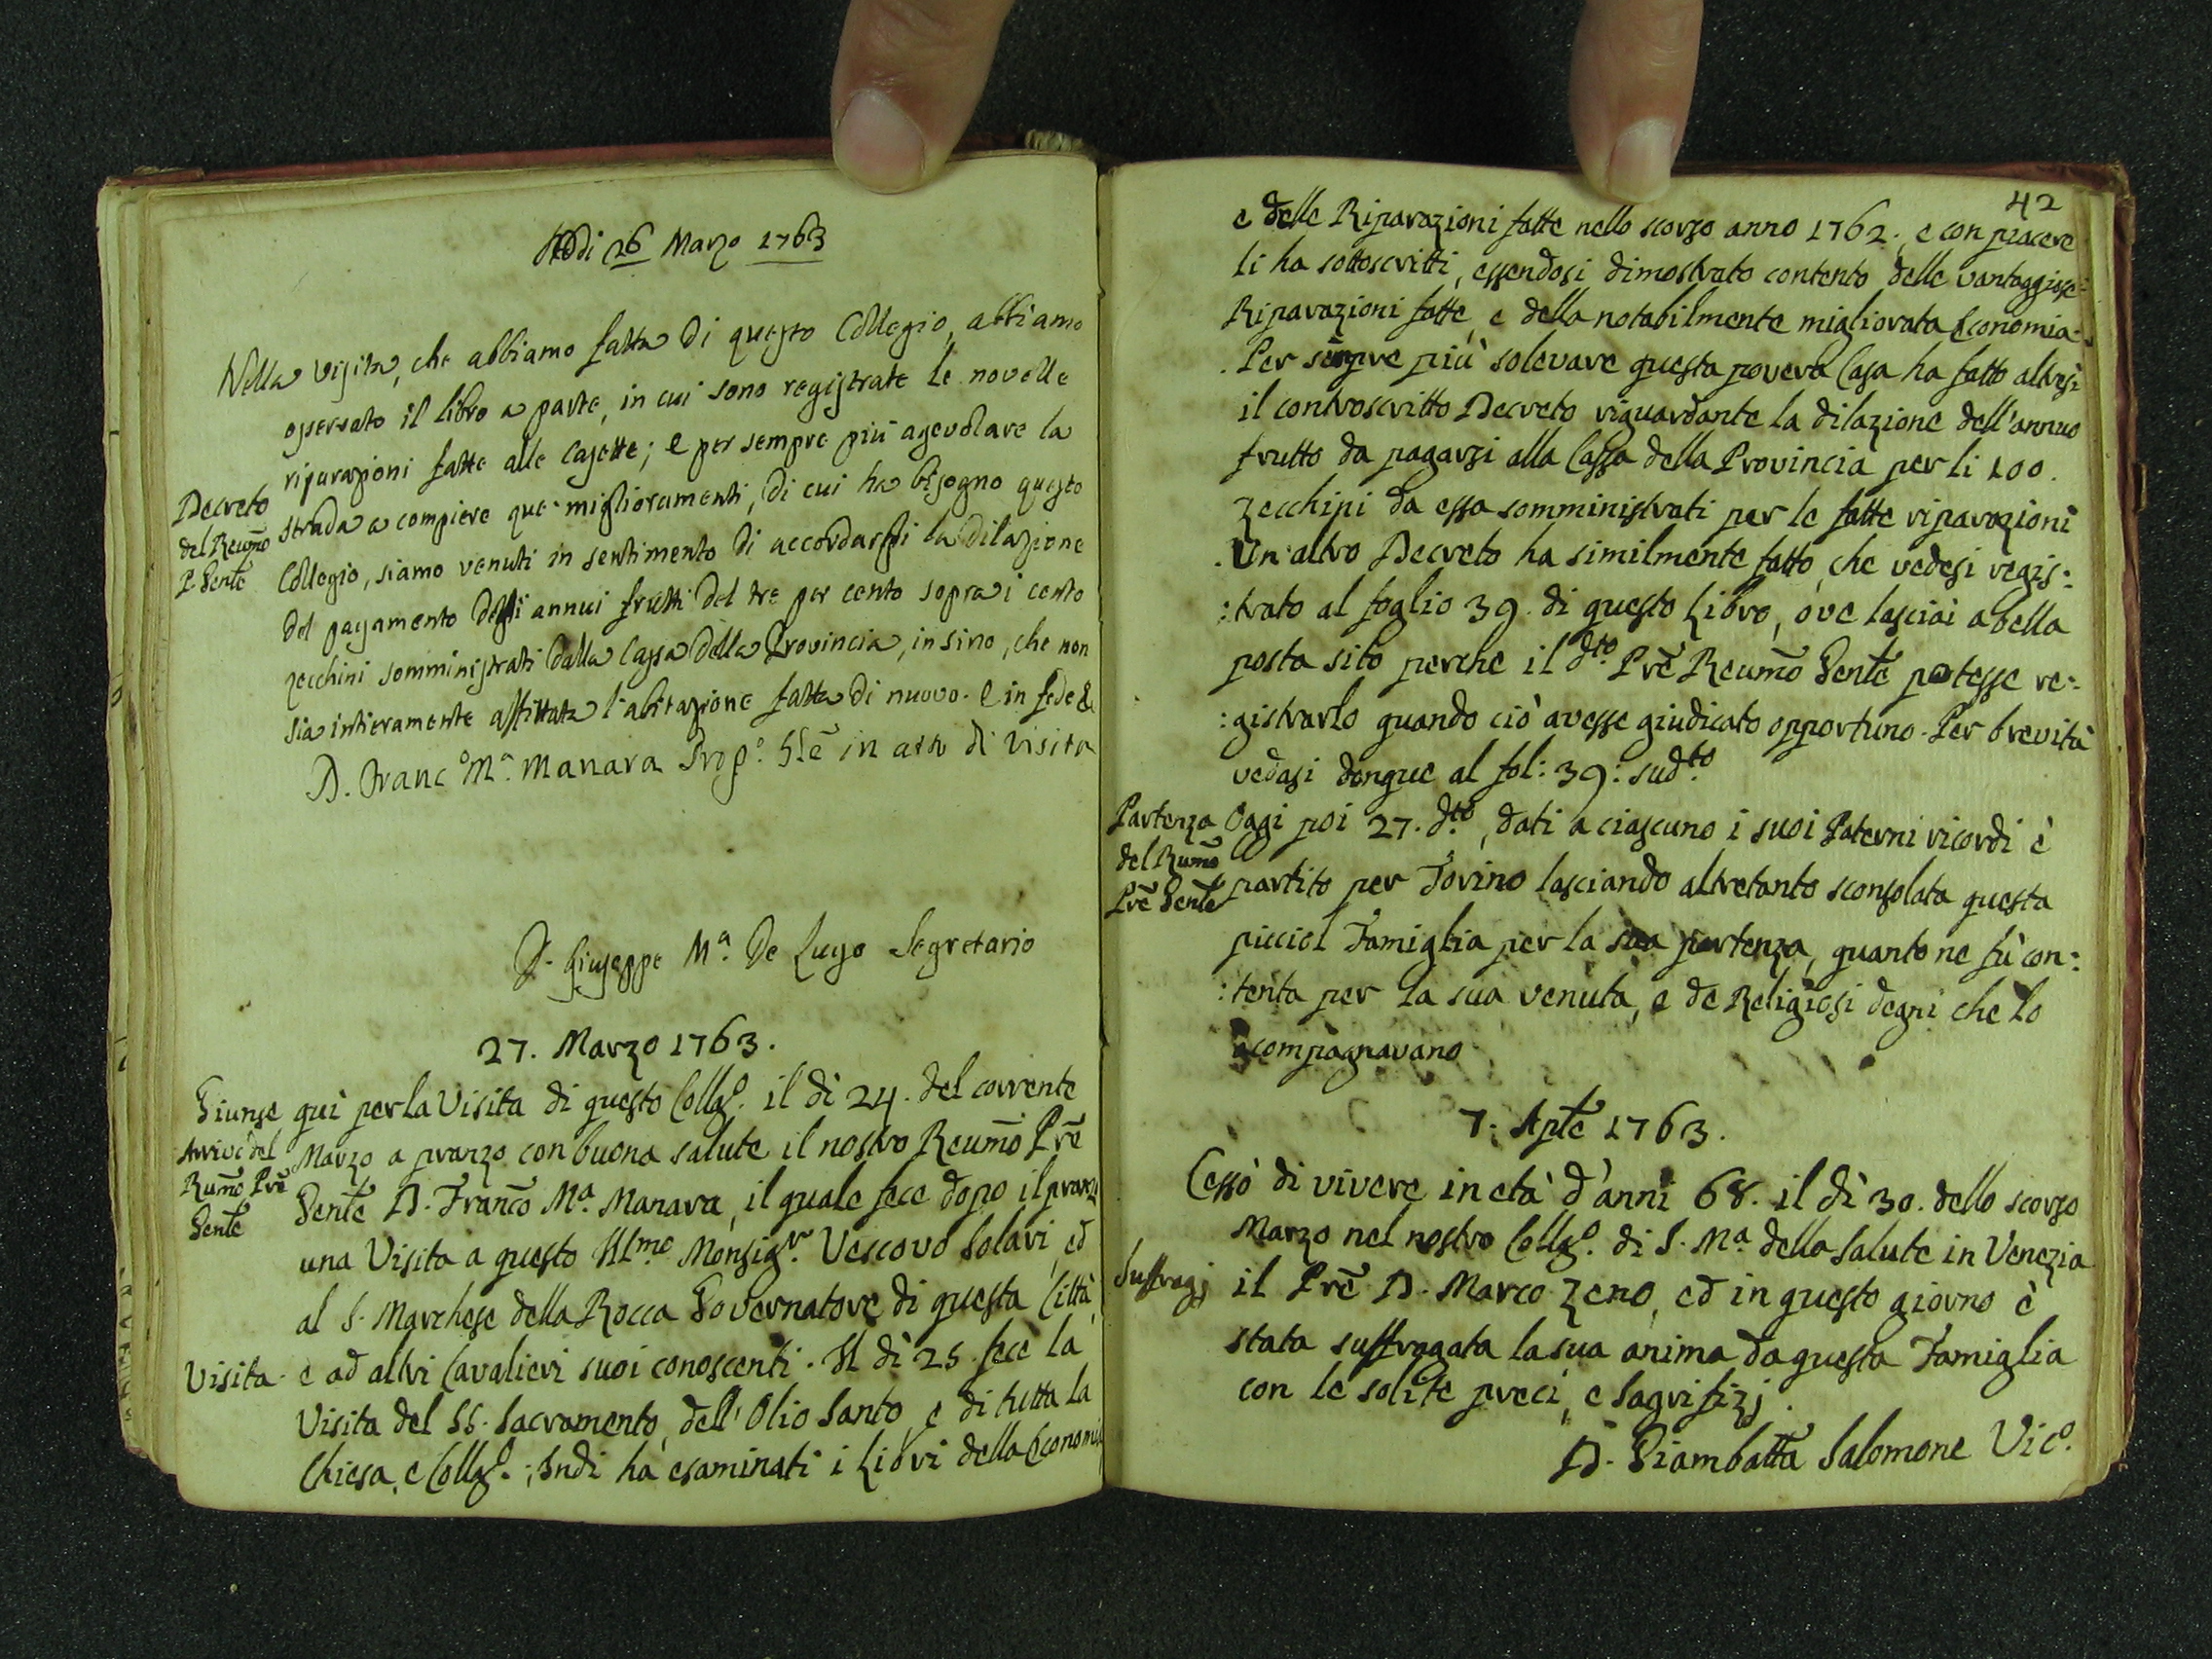 Adi 26 Marzo 1763
Nella visita, che abbiamo fatta di questo Collegio, abbiamo
osservato il libro a parte, in cui sono registrate le novelle
riparazioni fatte alle Casette; e per sempre più agevolare la
Decreto
del Reumo
P. Gente
strada a compiere que' miglioramenti, di cui ha bisogno questo
Collegio, siamo venuti in sentimento di accordargli la dilazione
del pagamento degli annui frutti del tre per cento sopra i cento
zecchini somministrati dalla Cassa della Provincia, insino, che non
sia intieramente affittata l'abitazione fatta di nuovo. E in fede &
D. Franc.o M.a Manara Prop.o Gle in atto di Visita
D. Giuseppe M.a De Lugo Segretario
27. Marzo 1763.
Giunse quì per la Visita di questo Collg.o il dì 24. del corrente
Arrivo del
Rumo Pre
Gente
Marzo a pranzo con buona salute il nostro Reumo Pre
Gente D. Franco M.a Manara, il quale fece dopo il pranzo
una Visita a questo Ill.mo Monsig.r Vescovo Solari, ed
al S. Marchese della Rocca Governatore di questa Città,
Visita
e ad altri Cavalieri suoi conoscenti. Il dì 25. fece la
Visita del SS. Sacramento, dell'Olio Santo, e di tutta la
Chiesa, e Collg.o; Indi ha esaminati i Libri della Economia
42
e delle Riparazioni fatte nello scorso anno 1762., e con piacere
li ha sottoscritti, essendosi dimostrato contento delle vantaggiose
Riparazioni fatte, e della notabilmente migliorata Economia.
Per sempre più solevare questa povera Casa ha fatto altresì
il controscritto Decreto riguardante la dilazione dell'annuo
frutto da pagarsi alla Cassa della Provincia per li 100.
zecchini da essa somministrati per le fatte riparazioni
Un altro Decreto ha similmente fatto, che vedesi regis:
:trato al foglio 39. di questo Libro, ove lasciai a bella
posta sito perche il d.to Pre Reumo Gente potesse re:
:gistrarlo quando ciò avesse giudicato opportuno. Per brevità
vedasi donque al fol: 39: sud.to
Partenza
del Rumo
Pre Gente
Oggi poi 27. d.to, dati a ciascuno i suoi Paterni ricordi è
partito per Torino lasciando altretanto sconsolata questa
picciol Famiglia per la sua partenza, quanto ne fù con:
:tenta per la sua venuta, e de Religiosi degni che lo
acompagnavano
7. Aple 1763.
Cessò di vivere in età d'anni 68. il dì 30. dello scorso
Marzo nel nostro Collg.o di S. M.a della Salute in Venezia
Suffragj
il Pre D. Marco Zeno, ed in questo giorno è
stata suffragata la sua anima da questa Famiglia
con le solite preci, e Sagrifizj.
D. Giambatta Salomone Vic.o